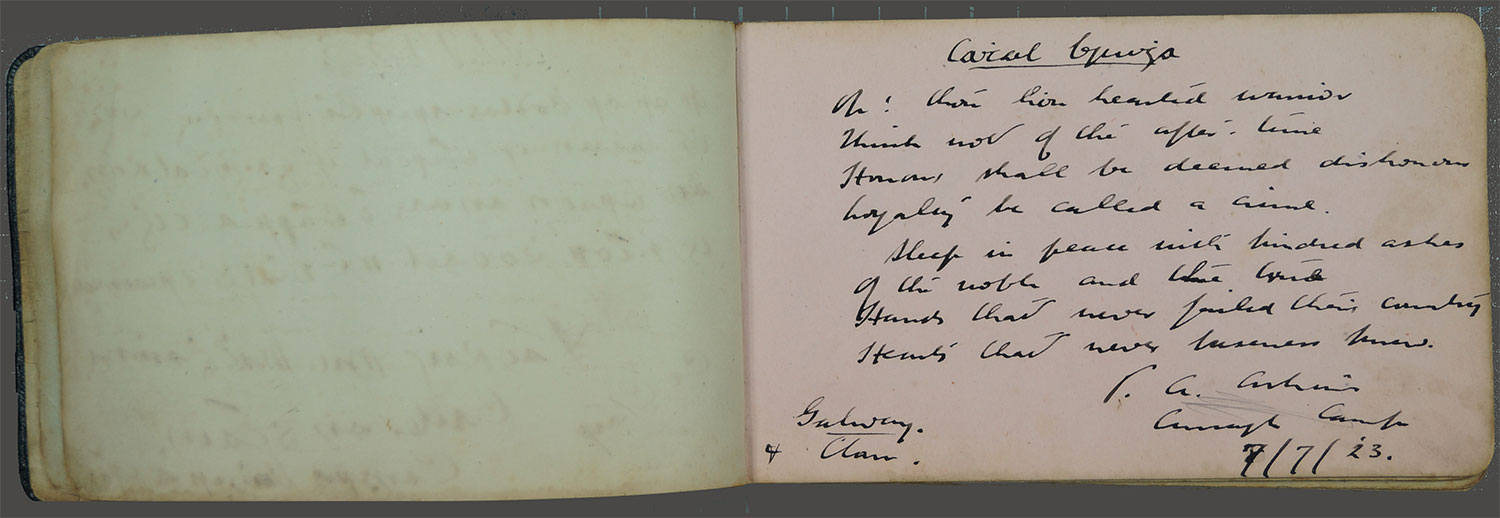 Oh! thou lion hearted warrior
Think not of the after-time
Honour shall be deemed dishonour
Loyalty be called a crime.
Sleep in peace with kindred ashes
Of the noble and the true
Hands that never failed their country
Hearts that never baseness knew.
P. A.
Curragh Camp
7/7/23.
Galway.
& Clare.